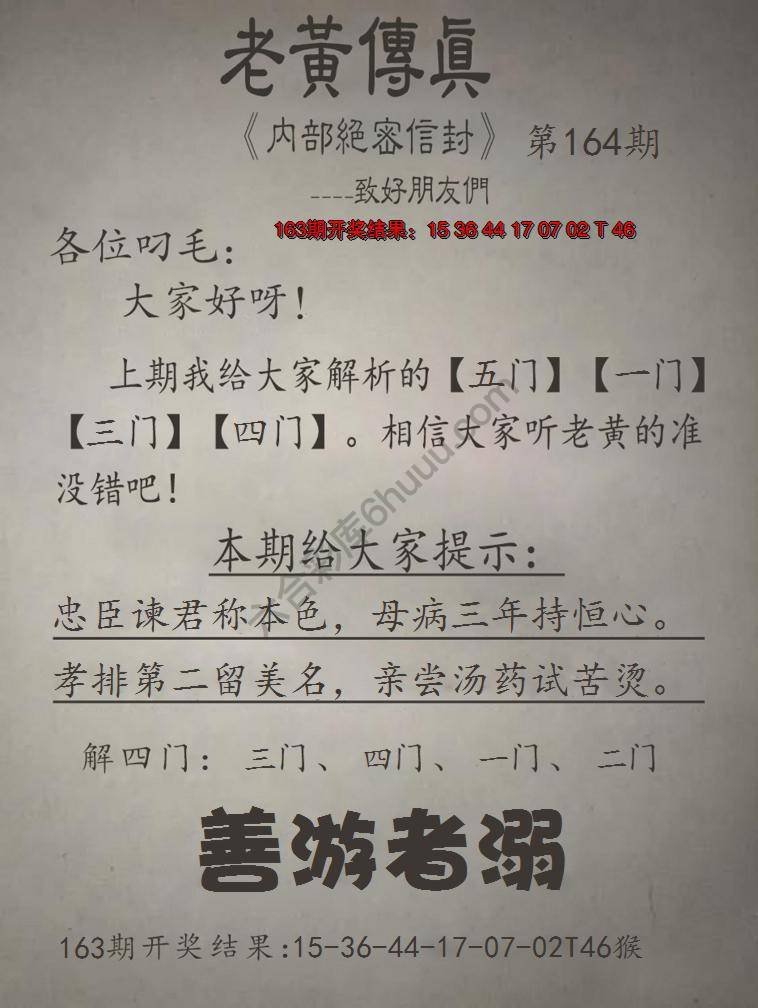 老黃傳眞
《内部絕密信封》 第164期
----致好朋友們
163期开奖结果：15 36 44 17 07 02 T 46
各位叼毛：
大家好呀！
上期我给大家解析的【五门】【一门】
【三门】【四门】。相信大家听老黄的准
没错吧！
本期给大家提示：
忠臣谏君称本色，母病三年持恒心。
孝排第二留美名，亲尝汤药试苦烫。
解四门：三门、四门、一门、二门
善游者溺
163期开奖结果:15-36-44-17-07-02T46猴
六合彩库6huuu.com